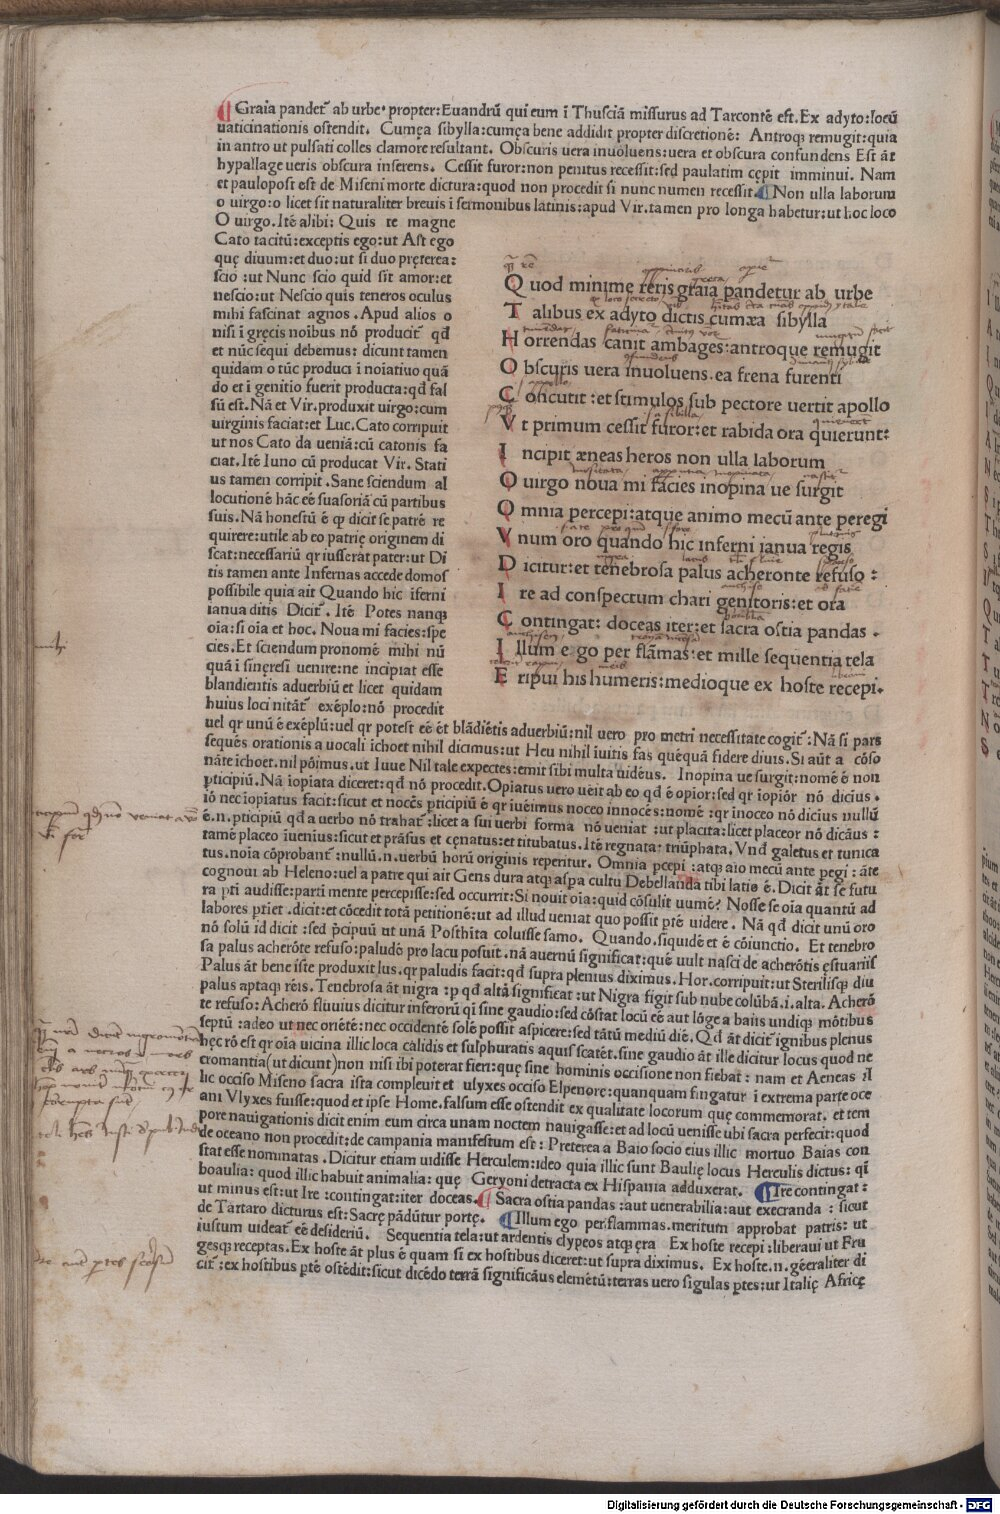 Graia pandet᷑ ab urbe. propter: Euandrū qui eum ī Thusciā missurus ad Tarcontē est. Ex adyto: locū
uaticinationis ostendit. Cumęa sibylla: cumęa bene addidit propter discretionē: Antroq; remugit: quia
in antro ut pulsati colles clamore resultant. Obscuris uera inuoluens: uera et obscura confundens Est āt
hypallage ueris obscura inserens. Cessit furor: non penitus recessit: sed paulatim cępit imminui. Nam
et paulopost est de Miseni morte dictura: quod non procedit si nunc numen recessit. Non ulla laborum
o uirgo: o licet sit naturaliter breuis ī sermonibus latinis: apud Vir. tamen pro longa habetur: ut hoc loco
O uirgo. Itē alibi: Quis te magne
Cato tacitū: exceptis ego: ut Ast ego
quę diuum: et duo: ut si duo pręterea:
scio : ut Nunc scio quid sit amor: et
nescio: ut Nescio quis teneros oculus
mihi fascinat agnos. Apud alios o
nisi ī gręcis noībus nō producit᷑ qd̄
et nūc sequi debemus: dicunt tamen
quidam o tūc produci ī noīatiuo quā
do et ī genitio fuerit producta: qd̄ fal
sū est. Nā et Vir. produxit uirgo: cum
uirginis faciat: et Luc. Cato corripuit
ut nos Cato da ueniā: cū catonis fa
ciat. Itē Iuno cū producat Vir. Stati
us tamen corripit. Sane sciendum al
locutionē hāc eē suasoriā cū partibus
suis. Nā honestū ē qp dicit se patrē re
quirere: utile ab eo patrię originem di
scat: necessariū qr iusserat pater: ut Di
tis tamen ante Infernas accede domos
possibile quia ait Quando hic īferni
ianua ditis Dicit᷑. Itē Potes nanq;
oīa: si oīa et hoc. Noua mi facies: spe
cies. Et sciendum pronomē mihi nū
quā ī sinęresi uenire: ne incipiat esse
blandientis aduerbiū et licet quidam
huius loci nitāt᷑ exēplo: nō procedit
Q uod minime reris graia pandetur ab urbe
T alibus ex adyto dictis cumæa sibylla
H orrendas canit ambages: antroque remugit
O bscuris uera inuoluens. ea frena furenti
C oncutit : et stimulos sub pectore uertit apollo
V t primum cessit furor: et rabida ora quierunt:
I ncipit æneas heros non ulla laborum
O uirgo noua mi facies inopina ue surgit
O mnia percepi: atque animo mecū ante peregi
V num oro quando hic inferni ianua regis
D icitur: et tenebrosa palus acheronte refuso :
I re ad conspectum chari genitoris: et ora
C ontingat: doceas iter: et sacra ostia pandas .
I llum ego per flāmas: et mille sequentia tela
E ripui his humeris: medioque ex hoste recepi.
uel qr unū ē exēplū: uel qr potest eē ēt blādiētis aduerbiū: nil uero pro metri necessitate cogit᷑: Nā si pars
sequēs orationis a uocali īchoet nihil dicimus: ut Heu nihil īuitis fas quēquā fidere diuis. Si aūt a cōso
nāte īchoet. nil pōimus. ut Iuue Nil tale expectes: emit sibi multa uidēus. Inopina ue surgit: nomē ē non
pticipiū. Nā īopiata diceret: qd̄ nō procedit. Opiatus uero ueīt ab eo qd̄ ē opior: sed qr īopiōr nō dicius.
iō nec īopiatus facit: sicut et nocēs pticipiū ē qr īuēimus noceo innocēs: nomē : qr īnoceo nō dicius nullū
ē. n. pticipiū qd̄ a uerbo nō trahat᷑: licet a sui uerbi forma nō ueniat : ut placita: licet placeor nō dicāus :
tamē placeo īuenius: sicut et prāsus et cęnatus: et titubatus. Itē regnata: triūphata. Vnd̄ galetus et tunica
tus. noīa cōprobant᷑: nullū. n. uerbū horū originis reperitur. Omnia pcepi : atq; aīo mecū ante pegi : āte
cognoui ab Heleno: uel a patre qui ait Gens dura atq; aspa cultu Debellanda tibi latio ē. Dicit āt se futu
ra pti audisse: parti mente percepisse: sed occurrit: Si nouit oīa: quid cōsulit uumē? Nosse se oīa quantū ad
labores ptīet. dicit: et cōcedit totā petitionē: ut ad illud ueniat quo possit ptē uidere. Nā qd̄ dicit unū oro
nō solū id dicit : sed pcipuū ut unā Posthita coluisse samo. Quando. siquidē et ē cōiunctio. Et tenebro
sa palus acherōte refuso: paludē pro lacu posuit. nā auernū significat: quē uult nasci de acherōtis ęstuariis
Palus āt bene iste produxit lus. qr paludis facit: qd̄ supra plenius diximus. Hor. corripuit: ut Sterilisq; diu
palus aptaq; rēis. Tenebrosa āt nigra : p qd̄ altā significat : ut Nigra figit sub nube colūbā. i. alta. Acherō
te refuso: Acherō fluuius dicitur inferorū qī sine gaudio: sed cōstat locū eē aut lōge a baiis undiq; mōtibus
septū : adeo ut nec oriētē: nec occidentē solē possit aspicere: sed tātū mediū diē. Qd̄ āt dicit᷑ ignibus plenus
hęc rō est qr oīa uicina illic loca calidis et sulphuratis aquis scatēt. sine gaudio āt ille dicitur locus quod ne
cromantia (ut dicunt) non nisi ibi poterat fieri: quę sine hominis occisione non fiebat : nam et Aeneas il
lic occiso Miseno sacra ista compleuit et ulyxes occiso Elpenore: quanquam fingatur ī extrema parte oce
ani Vlyxes fuisse: quod et ipse Home. falsum esse ostendit ex qualitate locorum quę commemorat. et tem
pore nauigationis dicit enim eum circa unam noctem nauigasse: et ad locū uenisse ubi sacra perfecit: quod
de oceano non procedit: de campania manifestum est: Preterea a Baio socio eius illic mortuo Baias con
stat esse nominatas. Dicitur etiam uidisse Herculem: ideo quia illic sunt Baulię locus Herculis dictus: qī
boaulia: quod illic habuit animalia: quę Geryoni detracta ex Hispania adduxerat. Ire contingat:
ut minus est: ut Ire : contingat: iter doceas. Sacra ostia pandas : aut uenerabilia: aut execranda : sicut
de Tartaro dicturus est: Sacrę pādūtur portę. Illum ego per flammas. meritum approbat patris: ut
iustum uideat᷑ eē desideriū. Sequentia tela: ut ardentis clypeos atq; ęra Ex hoste recepi: liberaui ut Fru
gesq; receptas. Ex hoste āt plus ē quam si ex hostibus diceret: ut supra diximus. Ex hoste. n. gēeraliter di
cit᷑: ex hostibus ptē ostēdit: sicut dicēdo terrā significāus elemētū: terras uero sigulas ptes: ut Italię Africę
Digitalisierung gefördert durch die Deutsche Forschungsgemeinschaft - DFG